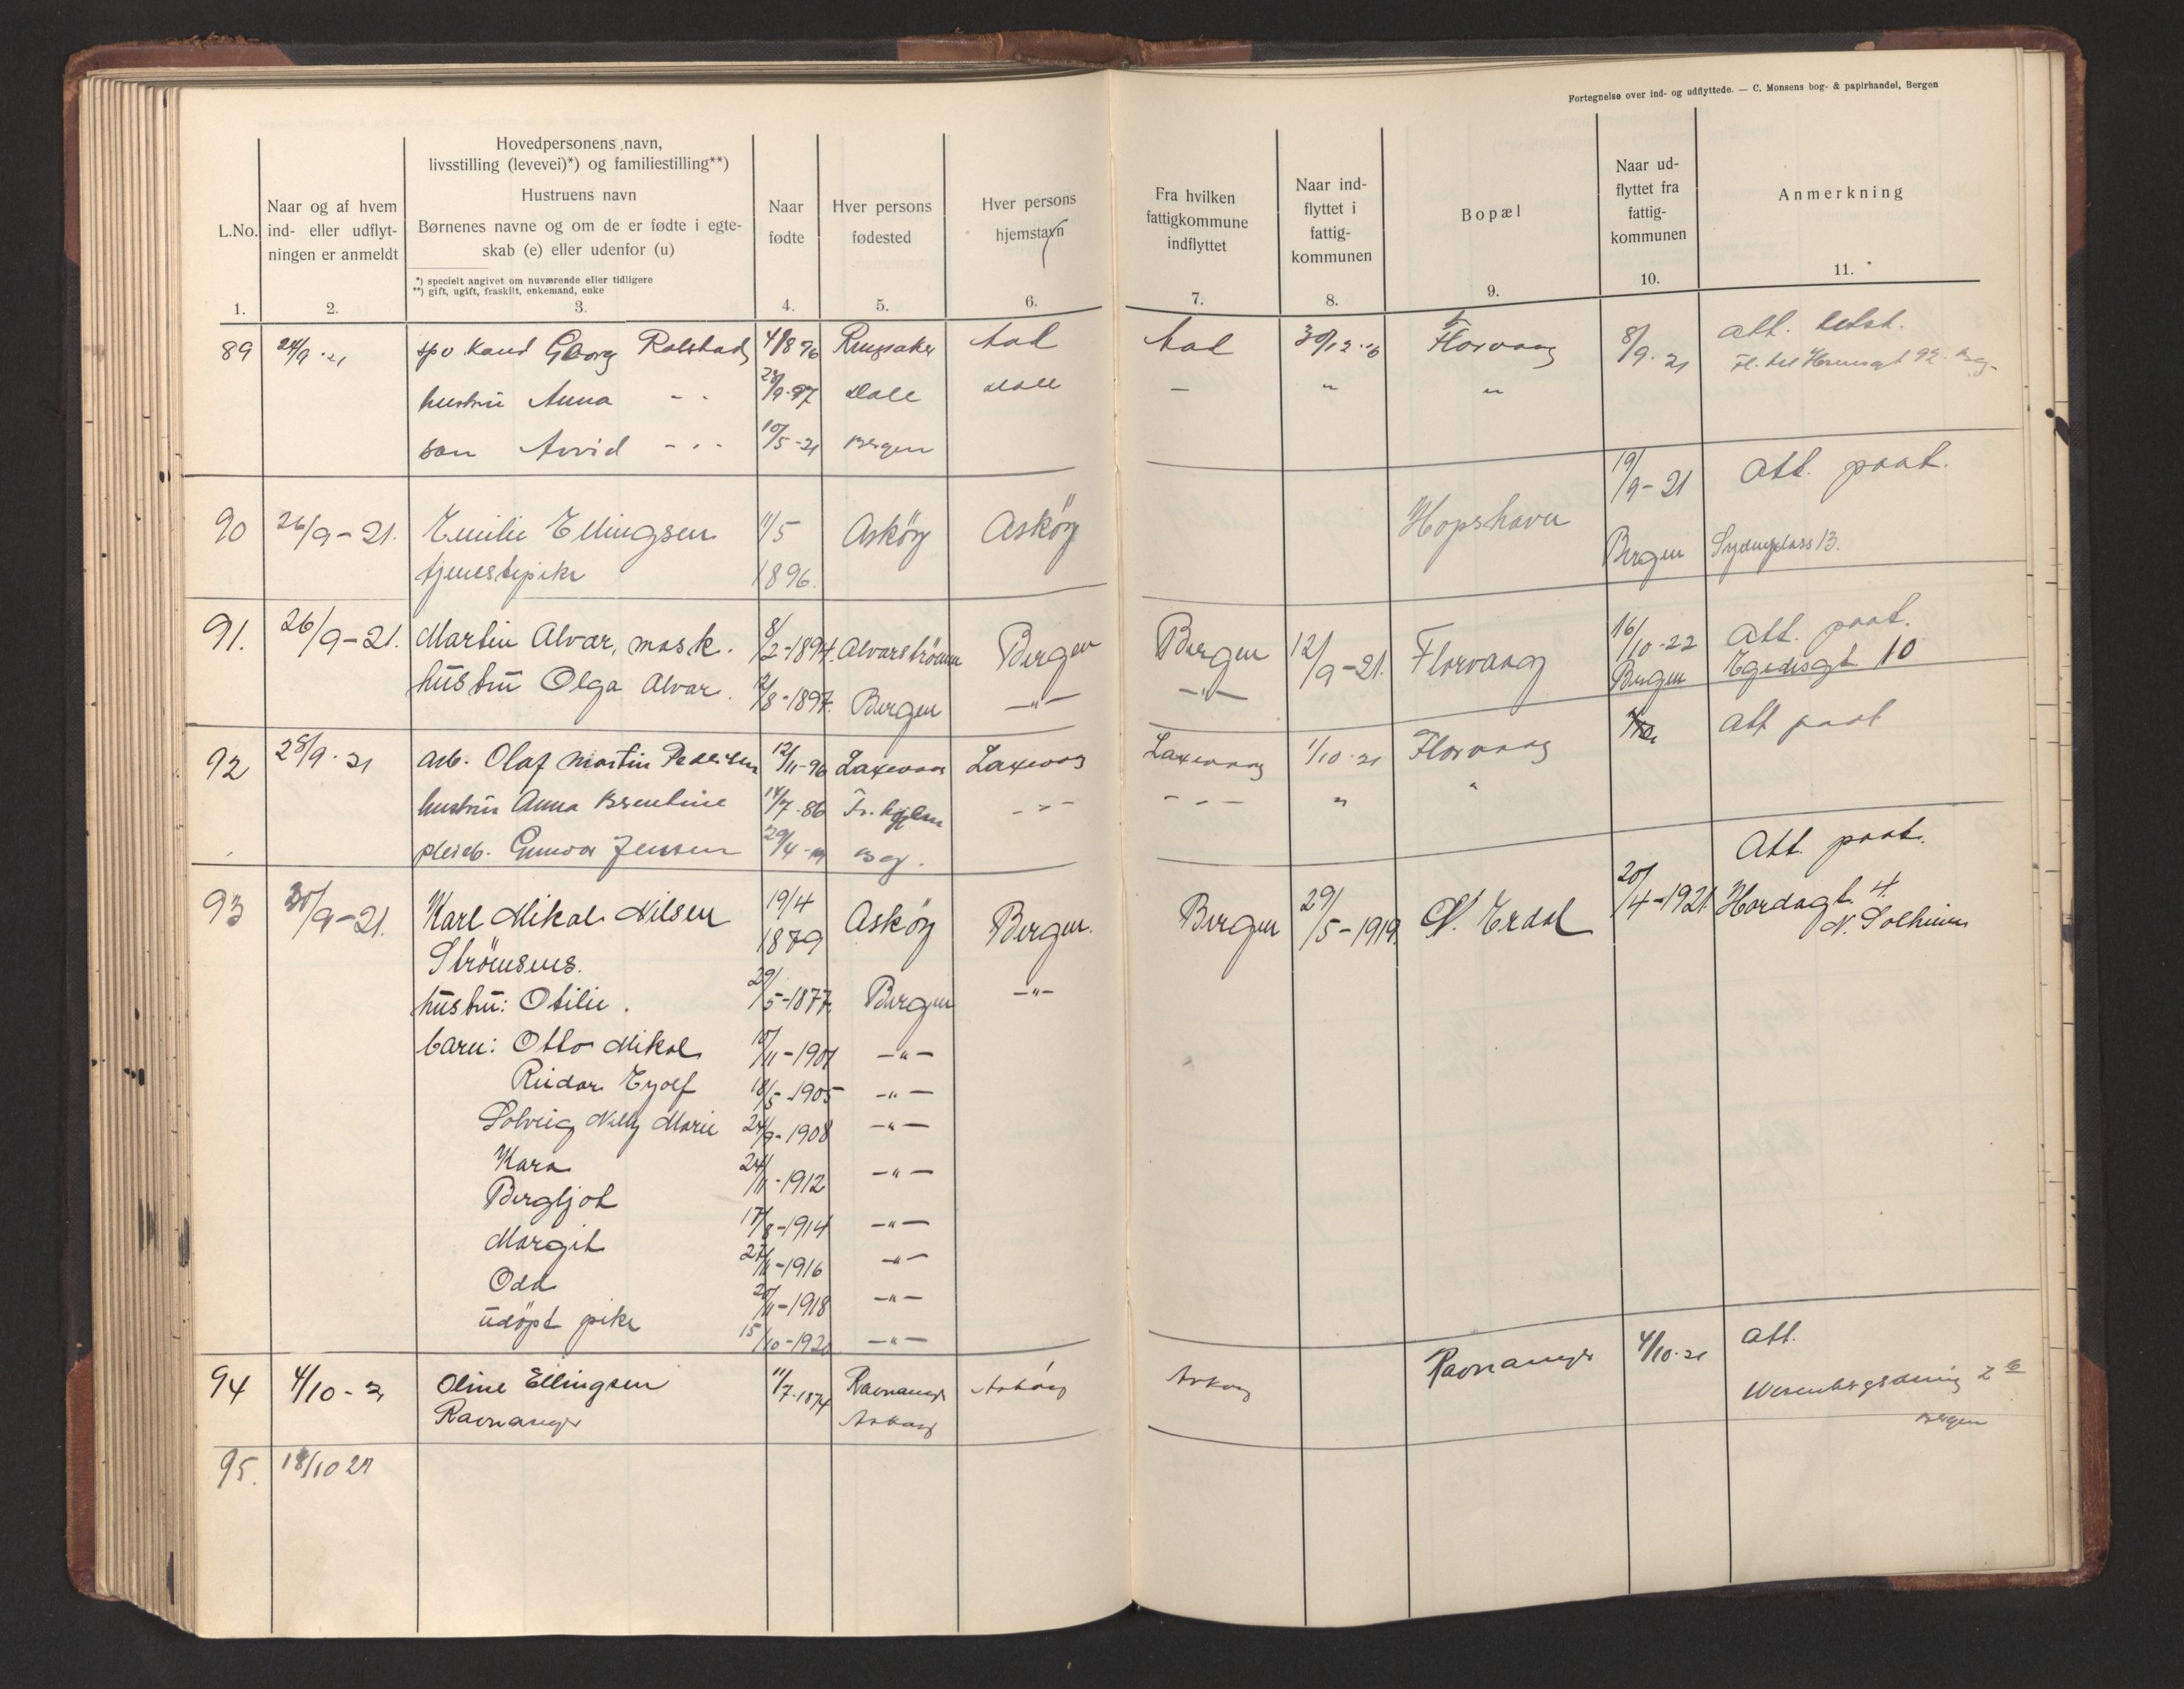 Fortegnelse over ind- og udflyttede. — C. Monsens bog- & papirhandel, Bergen
L.No.
1.
Naar og af hvem
ind- eller udflyt-
ningen er anmeldt
2.
Hovedpersonens navn,
livsstilling (levevei)*) og familiestilling**)
Hustruens navn
Børnenes navne og om de er fødte i egte-
skab (e) eller udenfor (u)
*) specielt angivet om nuværende eller tidligere
**) gift, ugift, fraskilt, enkemand, enke
3.
Naar
fødte
4.
Hver persons
fødested
5.
Hver persons
hjemstavn
6.
Fra hvilken
fattigkommune
indflyttet
7.
Naar ind-
flyttet i
fattig-
kommunen
8.
Bopæl
9.
Naar ud-
flyttet fra
fattig-
kommunen
10.
Anmerkning
11.
89 24/9-21 Georg Rolstad 4/8 96 Ringsaker Aal Aal 30/12-16 Florvaag 8/9-21 Att. utst.
hustru Anna - - 28/9-97 Dale Dale — " "
søn Arvid - - 10/5-21 Bergen
90 26/9-21. Emilie Ellingsen 11/5 Askøy Askøy Hopshavn 19/9-21 Att. paat.
tjenestepike 1896. Bergen Sydnesplass 13.
91. 26/9-21. Martin Alvar, mask. 8/2-1894. Alvarstrømmen Bergen Bergen 12/9-21. Florvaag 16/10-22 Att. paat.
hustru Olga Alvar. 12/8-1897. Bergen —"— —"— Bergen Egedesgt. 10
92 28/9-21 arb. Olaf Martin Pedersen 12/11-96 Laxevaag Laxevaag Laxevaag 1/10-21 Florvaag Att paat
hustru Anna Berntine 14/7-86 - " - - " - " "
pleieb. Gunvor Jensen 29/4-19 Bg.
93 30/9-21. Karl Mikal Nilsen 19/4 1879 Askøy Bergen. Bergen 29/5-1919. N. Erdal 20/4-1921. Att. paat.
Hordagt. 4.
N. Solheim
Strømsnes.
hustru: Otilie. 29/5-1877. Bergen —"—
barn: Otto Mikal 10/11-1901 —"—
Reidar Eyolf 18/5-1905 —"—
Solveig Nelly Marie 24/9-1908 —"—
Kara 24/11-1912 —"—
Bergljot 17/8-1914 —"—
Margit 27/11-1916 —"—
Odd 20/11-1918 —"—
udøpt pike 15/10-1920 —"—
94 4/10-21 Oline Ellingsen 11/7-1874 Ravnanger Askøy Askøy Ravnanger 4/10-21 Att.
Ravnanger Askøy
Bergen
95. 18/10 21